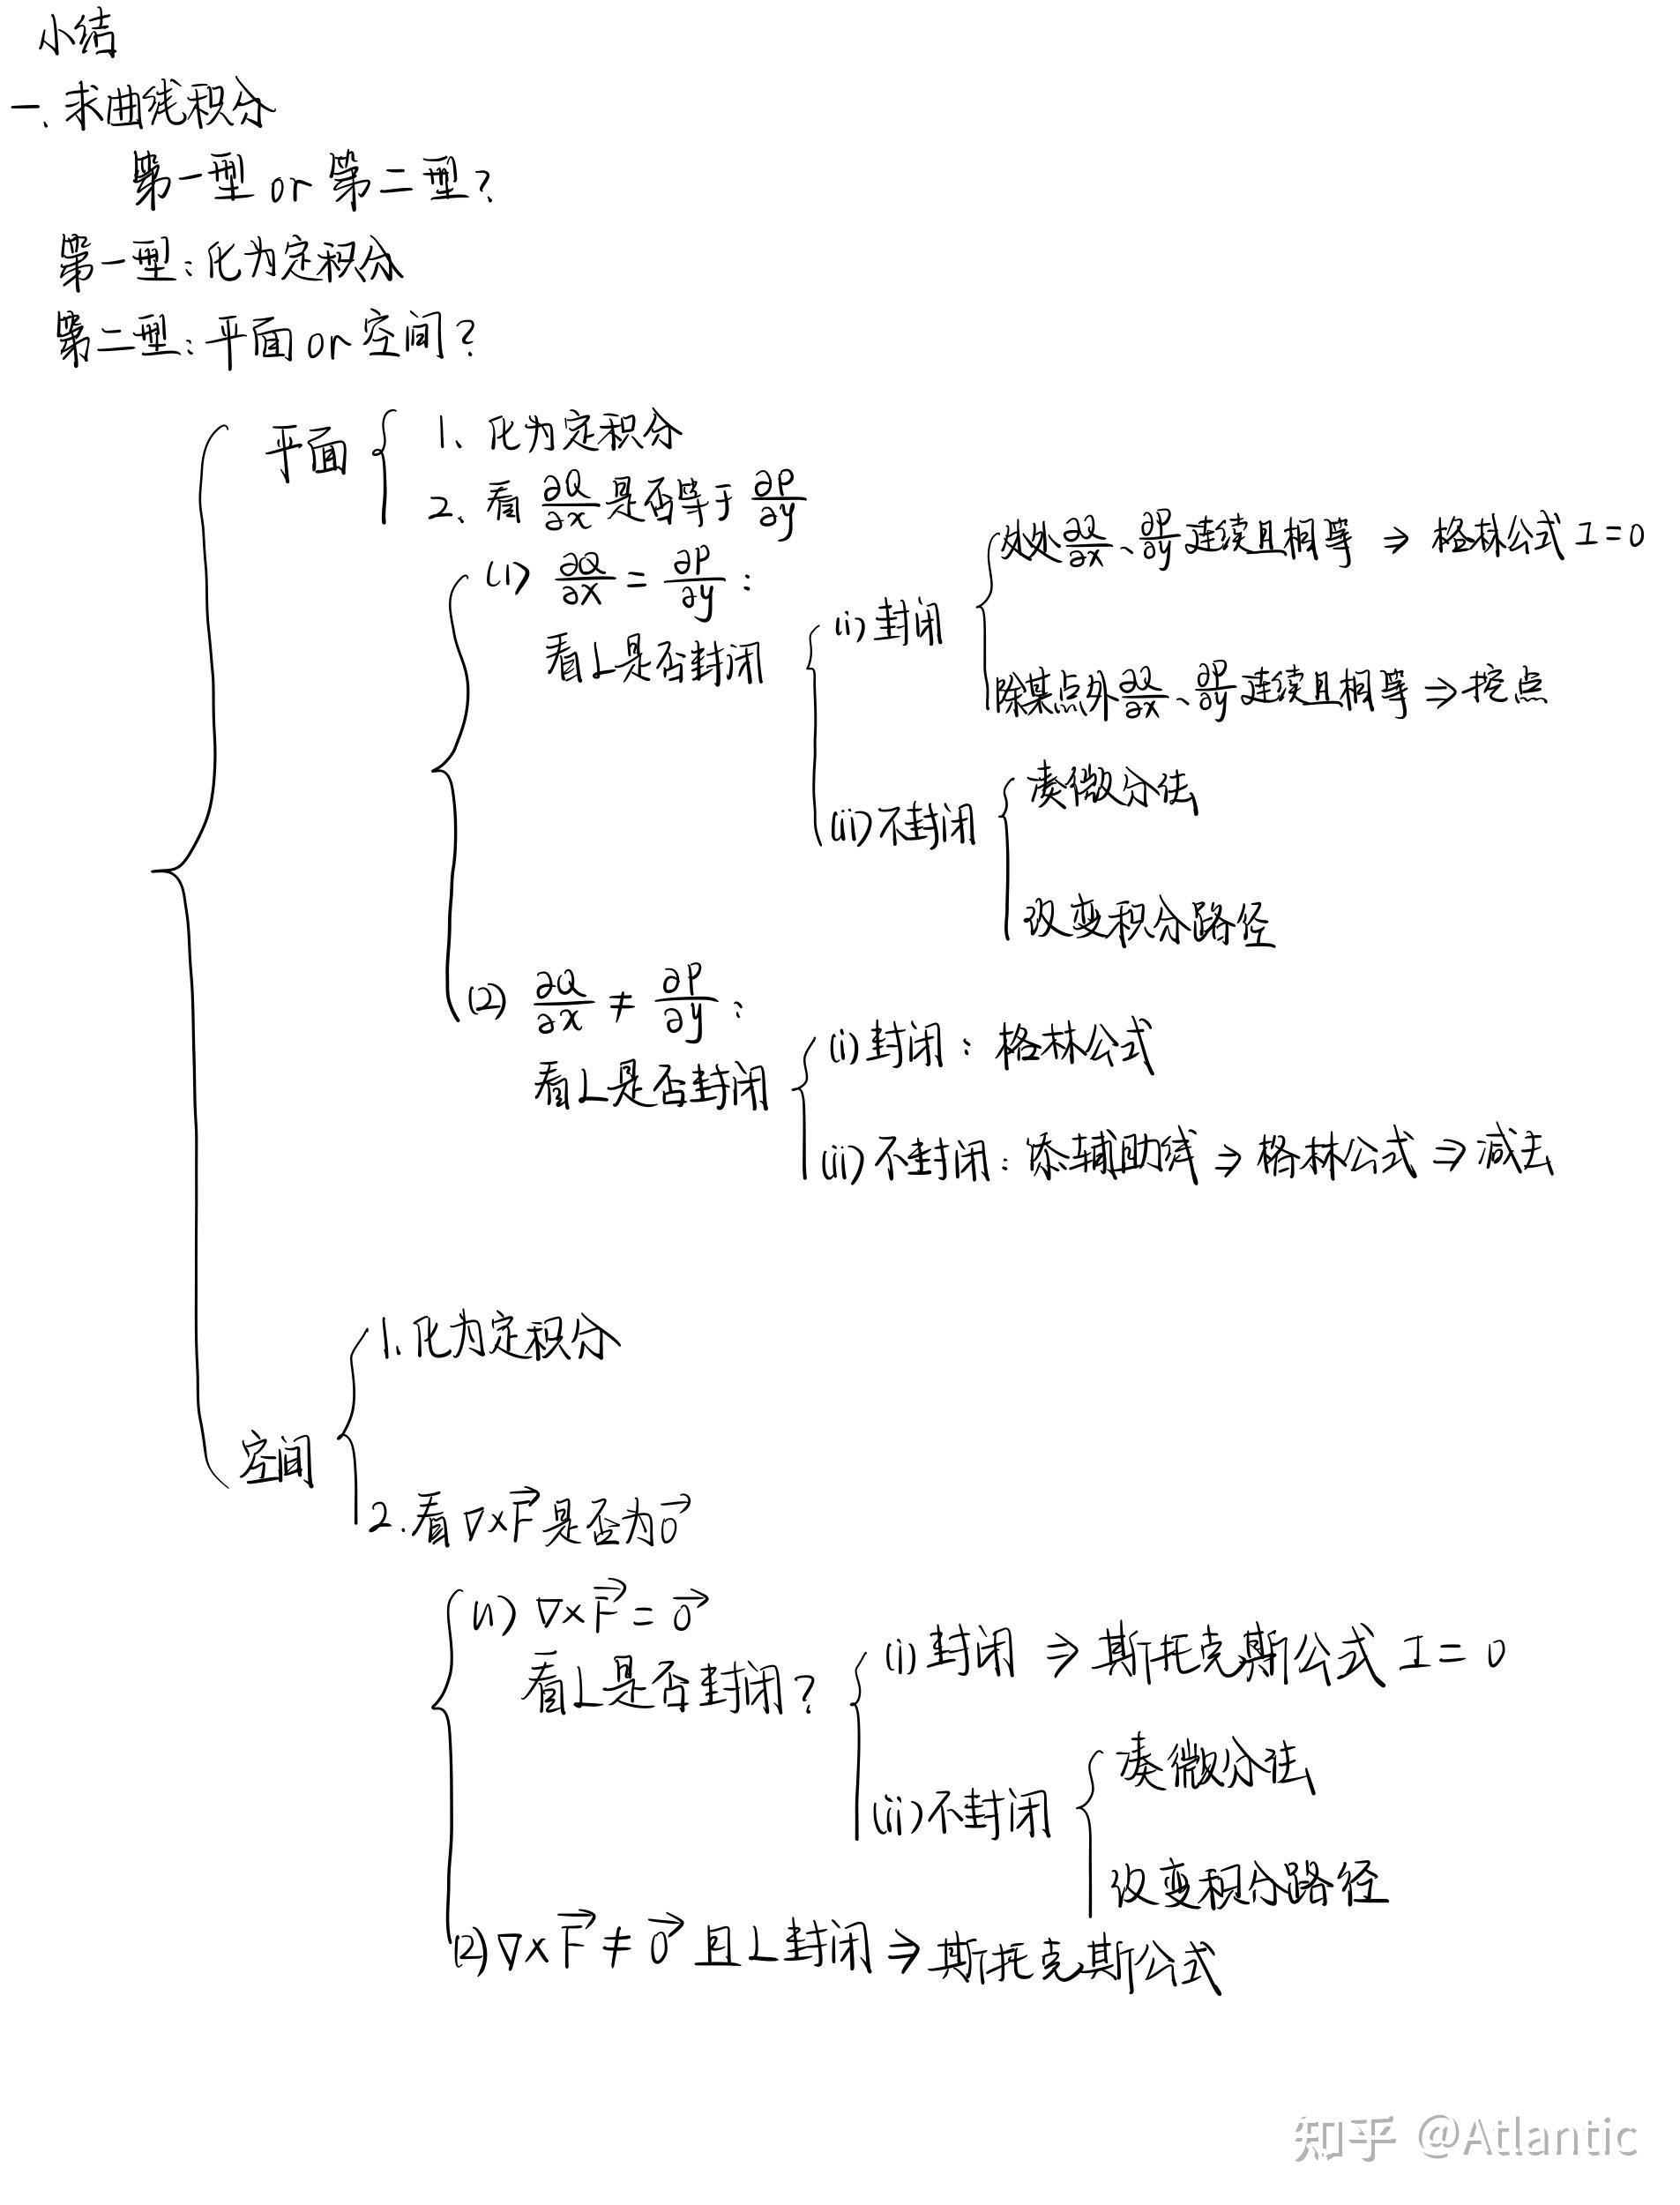 小结
一、求曲线积分
第一型 or 第二型?
第一型:化为定积分
第二型:平面 or 空间?
平面
1、化为定积分
2、看 ∂Q/∂x 是否等于 ∂P/∂y
(1) ∂Q/∂x = ∂P/∂y :
看L是否封闭
(i) 封闭
处处 ∂Q/∂x、∂P/∂y 连续且相等 ⇒ 格林公式 I=0
除某点外 ∂Q/∂x、∂P/∂y 连续且相等 ⇒ 挖点
(ii) 不封闭
凑微分法
改变积分路径
(2) ∂Q/∂x ≠ ∂P/∂y :
看L是否封闭
(i) 封闭:格林公式
(ii) 不封闭:添辅助线 ⇒ 格林公式 ⇒ 减去
空间
1、化为定积分
2.看 ∇×F⃗ 是否为 0⃗
(1) ∇×F⃗ = 0⃗
看L是否封闭?
(i) 封闭 ⇒ 斯托克斯公式 I=0
(ii) 不封闭
凑微分法
改变积分路径
(2) ∇×F⃗ ≠ 0⃗ 且L封闭 ⇒ 斯托克斯公式
知乎 @Atlantic